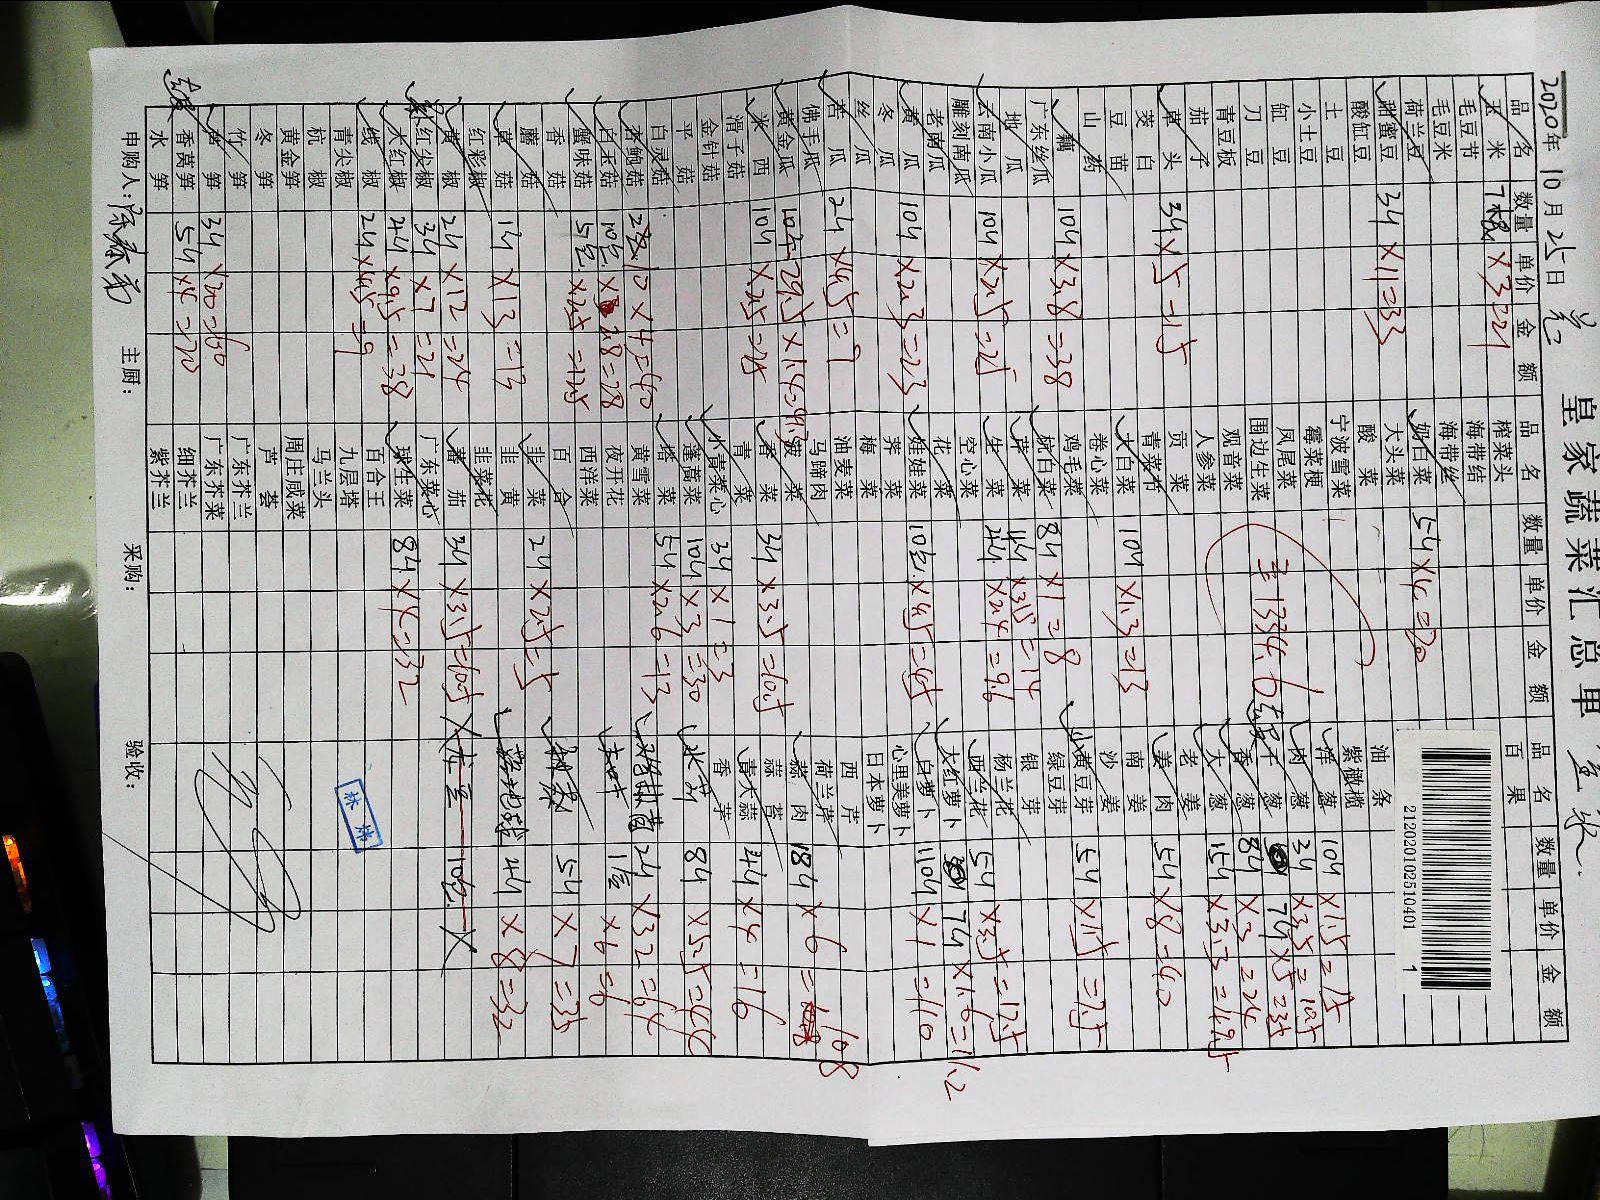 皇家蔬菜汇总单
2020年10月25日
212020102510401 1
品名 数量 单价 金额 品名 数量 单价 金额 品名 数量 单价 金额
玉米 ×3=21 榨菜头 百果
毛豆节 海带结
毛豆米 海带丝
荷兰豆 奶白菜 5斤×4=20
甜蜜豆 3斤×11=33 大头菜
酸缸豆 酸菜 油条
土豆 宁波雪菜 紫橄榄
小土豆 霉菜梗 洋葱 10斤×1.5=15
缸豆 凤尾菜 肉葱 3斤×3.5=10.5
刀豆 围边生菜 干葱 7斤×5=35
青豆板 观音菜 香葱 8斤×3=24
茄子 人参菜 大葱 15斤×3.3=49.5
草头 3斤×5=15 贡菜 老姜
茭白 青菜节 姜肉 5斤×8=40
豆苗 大白菜 10斤×1.3=13 南姜
山药 卷心菜 沙姜
藕 10斤×3.8=38 鸡毛菜 小黄豆芽 5斤×1.5=7.5
广东丝瓜 杭白菜 8斤×1=8 绿豆芽
地瓜 芹菜 4斤×3.5=14 银芽
云南小瓜 10斤×2.5=25 生菜 4斤×2.4=9.6 杨兰花
雕刻南瓜 空心菜 西兰花 5斤×3.5=17.5
老南瓜 花菜 大红萝卜 7斤×1.6=11.2
黄瓜 10斤×2.3=23 娃娃菜 10包×4.5=45 白萝卜 110斤×1=110
冬瓜 荠菜 心里美萝卜
丝瓜 梅菜 日本萝卜
苦瓜 2斤×4.5=9 油麦菜 西芹
佛手瓜 马蹄肉 荷兰芹
黄金瓜 29.5×1.4=41.3 菠菜 蒜肉 18斤×6=108
米西 10斤×2.5=25 香菜 3斤×3.5=10.5 蒜苔
滑子菇 青菜 青大蒜 4斤×4=16
金针菇 小青菜心 3斤×1=3 香芋
平菇 蓬蒿菜 10斤×3=30 8斤
白灵菇 塔菜 5斤×2.6=13
杏鲍菇 10×4=40 黄雪菜 2斤×32=64
白玉菇 10包×2.8=28 夜开花 ×6=6
蟹味菇 5包×2.5=12.5 西洋菜
香菇 百合 5斤×7=35
蘑菇 韭菜 2斤×2.5=5
草菇 1斤×13=13 韭黄 4斤×8=32
红彩椒 韭菜花
黄椒 2斤×12=24 蕃茄 3斤×3.5=10.5 10包
红尖椒 3斤×7=21 广东菜心
大红椒 4斤×9.5=38 球生菜 8斤×4=32
线椒 2斤×4.5=9 百合王
青尖椒 九层塔
杭椒 马兰头
黄金笋 周庄咸菜
冬笋 芦荟
竹笋 广东芥兰
笋 3斤×20=60 广东芥菜
香莴笋 5斤×4=20 细芥兰
水笋 紫芥兰
¥1334.6
林炜
申购人: 主厨: 采购: 验收: